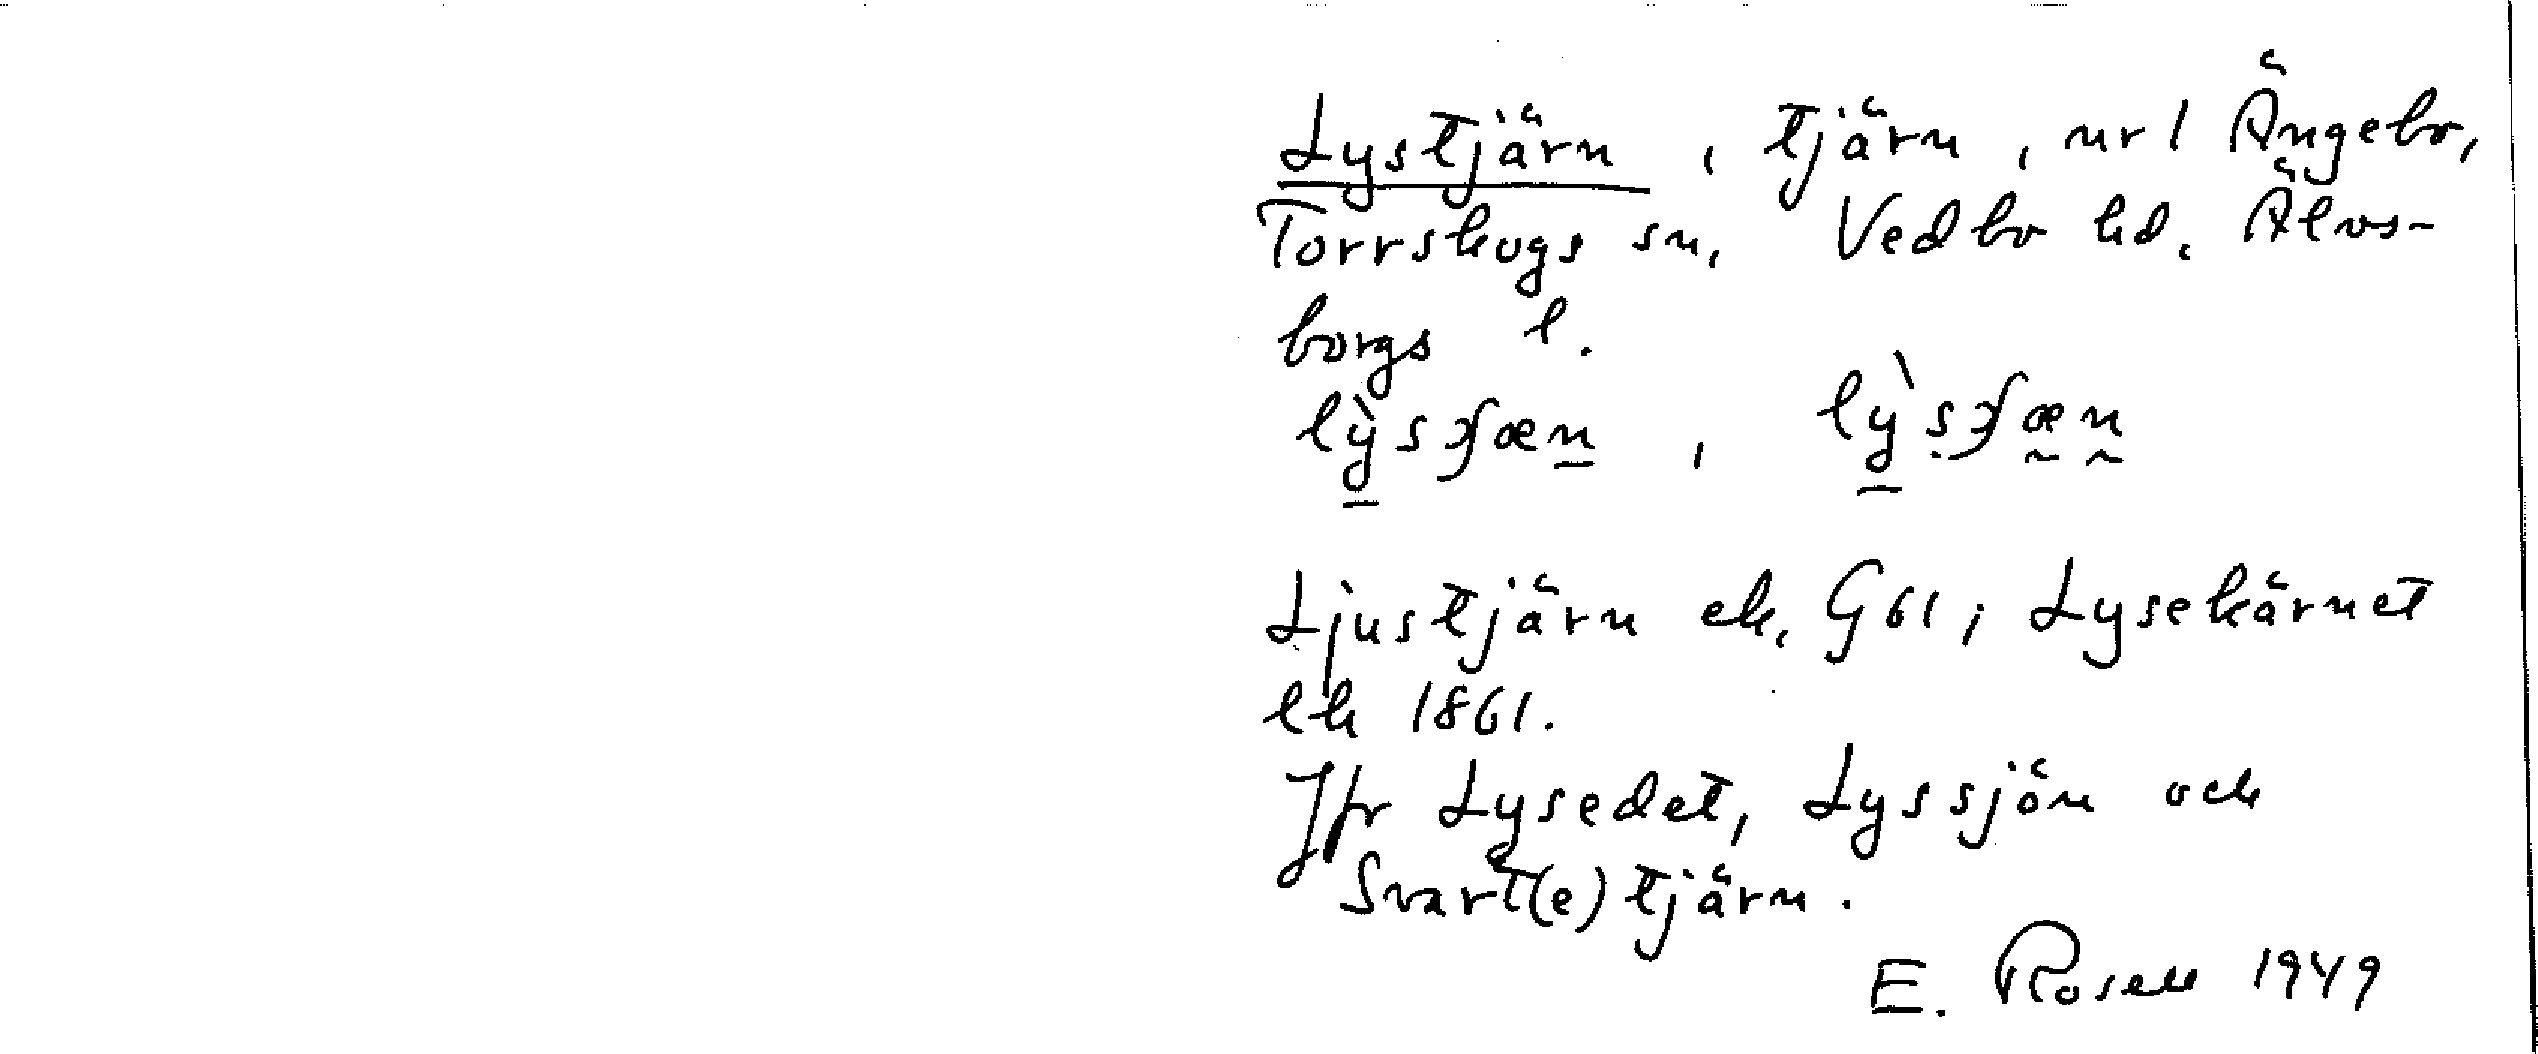 Lystjärn, tjärn, nr 1 Ängebo,
Torrskogs sn, Vedbo hd. Älvs-
borgs l.
Ljustjärn ek. G61; Lysekärnet
lk 1861.
Jfr Lysedet, Lyssjön och
Svart(e)tjärn.
E. Rosell 1949